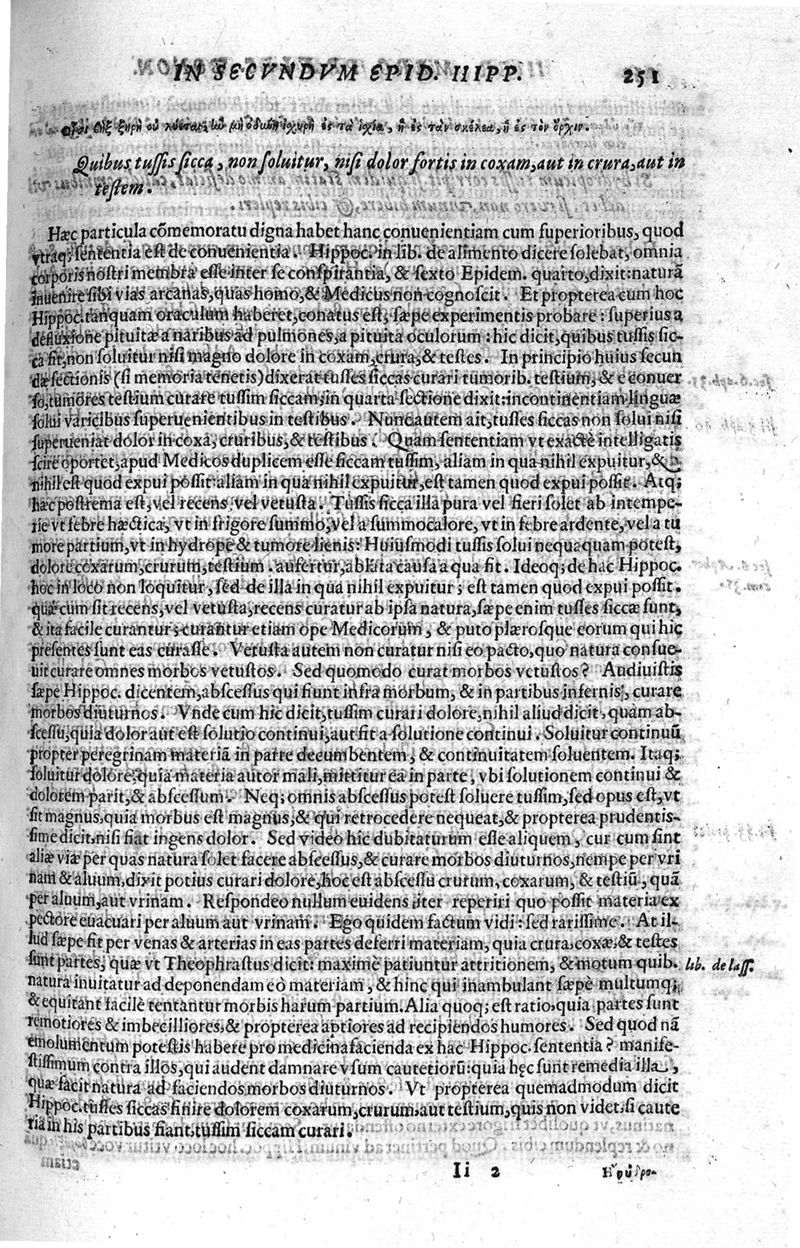 IN SECVNDVM EPID. HIPP. 251
Quibus tussis sicca, non soluitur, nisi dolor fortis in coxam, aut in crura, aut in
testem.
Hæc particula cõmemoratu digna habet hanc conuenientiam cum superioribus, quod
vtraq; sententia est de conuenientia. Hippoc. in lib. de alimento dicere solebat, omnia
corporis nostri membra esse inter se conspirantia, & sexto Epidem. quarto, dixit: naturã
inuenire sibi vias arcanas, quas homo, & Medicus non cognoscit. Et propterea cum hoc
Hippoc. tanquam oraculum haberet, conatus est, sæpe experimentis probare: superius a
defluxione pituitæ a naribus ad pulmones, a pituita oculorum: hic dicit, quibus tussis sic-
ca fit, non soluitur nisi magno dolore in coxam, crura, & testes. In principio huius secun
dæ sectionis (si memoria tenetis) dixerat tusses siccas curari tumorib. testium, & e conuer
so, tumores testium curare tussim siccam, in quarta sectione dixit: incontinentiam linguæ
solui varicibus superuenientibus in testibus. Nunc autem ait, tusses siccas non solui nisi
superueniat dolor in coxa, cruribus, & testibus. Quam sententiam vt exacte intelligatis
scire oportet, apud Medicos duplicem esse siccam tussim, aliam in qua nihil expuitur, &
nihil est quod expui possit: aliam in qua nihil expuitur, est tamen quod expui possit. Atq;
hæc postrema est, vel recens, vel vetusta. Tussis sicca illa pura vel fieri solet ab intempe-
rie vt febre hæctica, vt in frigore summo, vel a summo calore, vt in febre ardente, vel a tu
more partium, vt in hydrope & tumore lienis: Huiusmodi tussis solui nequaquam potest,
dolore coxarum, crurum, testium. aufertur, ablata causa a qua fit. Ideoq; de hac Hippoc.
hoc in loco non loquitur, sed de illa in qua nihil expuitur; est tamen quod expui possit.
quæ cum sit recens, vel vetusta, recens curatur ab ipsa natura, sæpe enim tusses siccæ sunt,
& ita facile curantur; curantur etiam ope Medicorum, & puto plærosque eorum qui hic
presentes sunt eas curasse. Vetusta autem non curatur nisi eo pacto, quo natura consue-
uit curare omnes morbos vetustos. Sed quomodo curat morbos vetustos? Audiuistis
sæpe Hippoc. dicentem, abscessus qui fiunt infra morbum, & in partibus infernis, curare
morbos diuturnos. Vnde cum hic dicit, tussim curari dolore, nihil aliud dicit, quam ab-
scessu, quia dolor aut est solutio continui, aut fit a solutione continui. Soluitur continuũ
propter peregrinam materiã in parte decumbentem, & continuitatem soluentem. Itaq;
soluitur dolore, quia materia autor mali, mittitur ea in parte, vbi solutionem continui &
dolorem parit, & abscessum. Neq; omnis abscessus potest soluere tussim, sed opus est, vt
sit magnus, quia morbus est magnus, & qui retrocedere nequeat, & propterea prudentis-
sime dicit, nisi fiat ingens dolor. Sed video hic dubitaturum esse aliquem, cur cum sint
aliæ viæ per quas natura solet facere abscessus, & curare morbos diuturnos, nempe per vri
nam & aluum, dixit potius curari dolore, hoc est abscessu crurum, coxarum, & testiũ, quã
per aluum, aut vrinam. Respondeo nullum euidens iter reperiri quo possit materia ex
pectore euacuari per aluum aut vrinam. Ego quidem factum vidi: sed rarissime. At il-
lud sæpe fit per venas & arterias in eas partes deferri materiam, quia crura, coxæ, & testes
sunt partes, quæ vt Theophrastus dicit: maxime patiuntur attritionem, & motum quib. lib. de lass.
natura inuitatur ad deponendam eo materiam, & hinc qui inambulant sæpe multumq;
& equitant facile tentantur morbis harum partium. Alia quoq; est ratio, quia partes sunt
remotiores & imbecilliores, & propterea aptiores ad recipiendos humores. Sed quod nã
emolumentum potestis habere pro medicina facienda ex hac Hippoc. sententia? manife-
stissimum contra illos, qui audent damnare vsum cauteriorũ: quia hęc sunt remedia illa,
quæ facit natura ad faciendos morbos diuturnos. Vt propterea quemadmodum dicit
Hippoc. tusses siccas finire dolorem coxarum, crurum, aut testium, quis non videt, si caute
ria in his partibus fiant, tussim siccam curari.
Ii 2